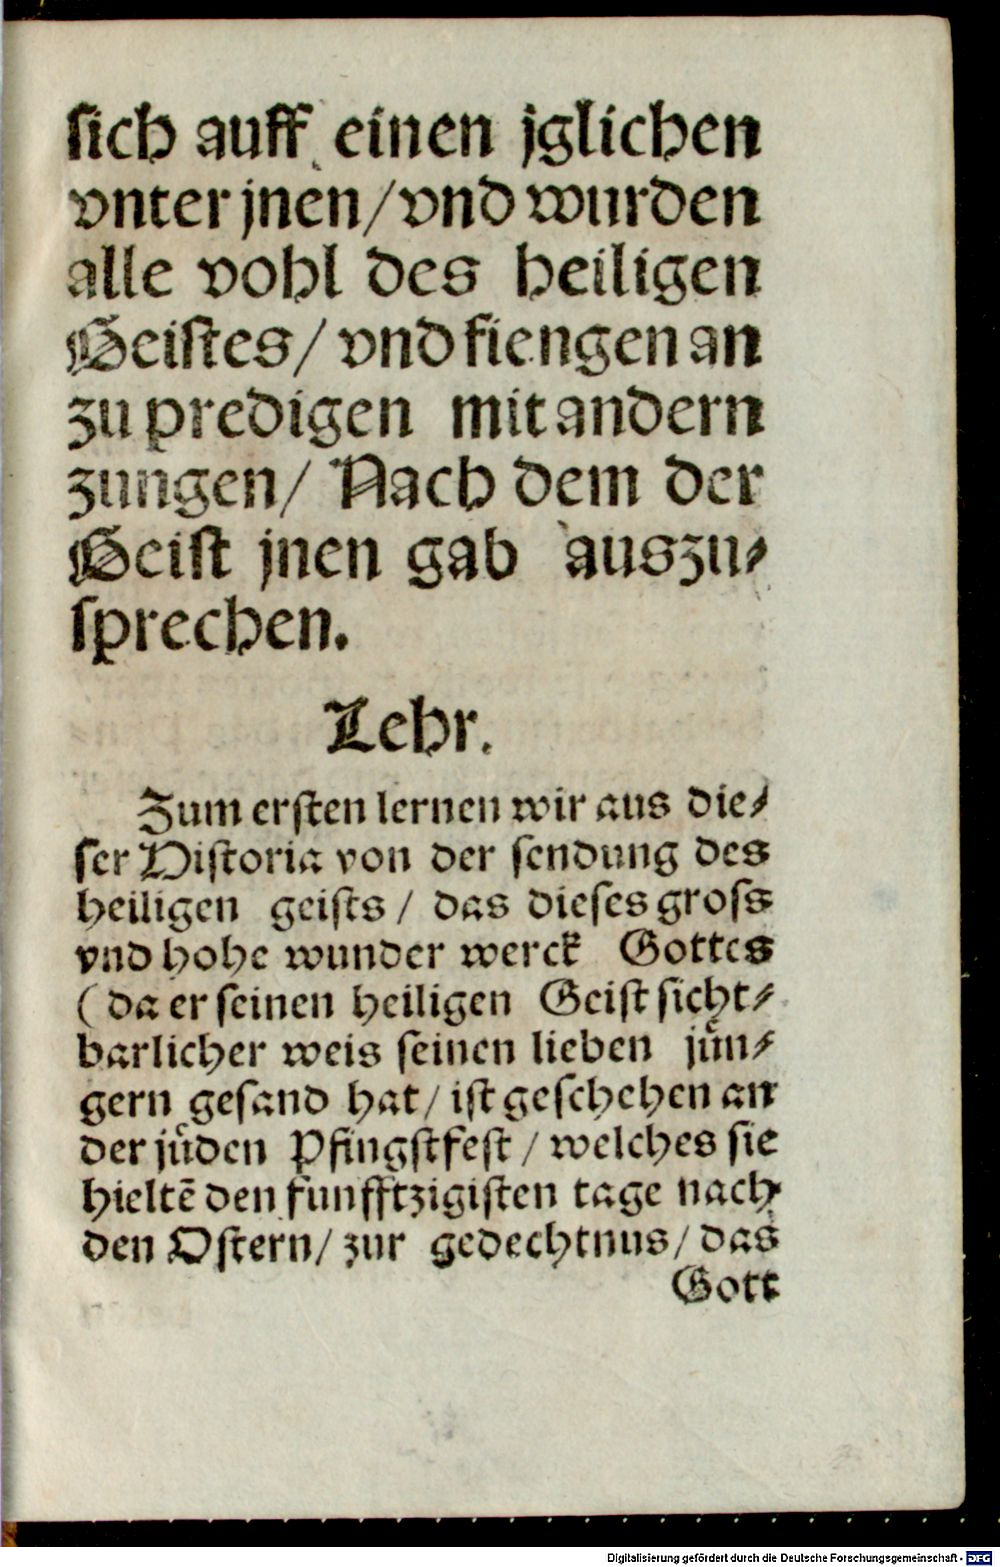 sich auff einen jglichen
vnter jnen/vnd wurden
alle vohl des heiligen
Geistes/ vnd fiengen an
zu predigen mit andern
zungen/ Nach dem der
Geist jnen gab auszu-
sprechen.
Lehr.
Zum ersten lernen wir aus die-
ser Historia von der sendung des
heiligen geists/ das dieses gross
vnd hohe wunder werck Gottes
(da er seinen heiligen Geist sicht-
barlicher weis seinen lieben jün-
gern gesand hat/ ist geschehen an
der jüden Pfingstfest/ welches sie
hieltē den funfftzigisten tage nach
den Ostern/ zur gedechtnus/ das
Gott
Digitalisierung gefördert durch die Deutsche Forschungsgemeinschaft - DFG